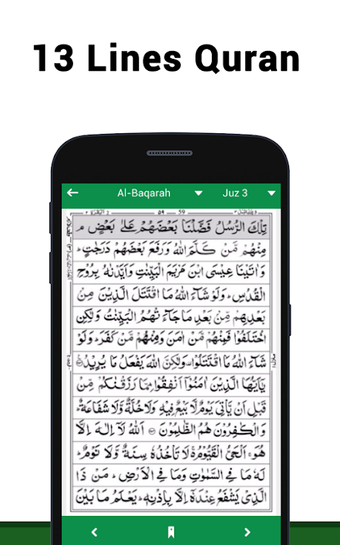 13 Lines Quran
Al-Baqarah
Juz 3
تِلْكَ الرُّسُلُ فَضَّلْنَا بَعْضَهُمْ عَلٰى بَعْضٍ ۘ
مِنْهُمْ مَّنْ كَلَّمَ اللّٰهُ وَرَفَعَ بَعْضَهُمْ دَرَجٰتٍ ؕ
وَاٰتَيْنَا عِيْسَى ابْنَ مَرْيَمَ الْبَيِّنٰتِ وَاَيَّدْنٰهُ بِرُوْحِ
الْقُدُسِ ؕ وَلَوْ شَآءَ اللّٰهُ مَا اقْتَتَلَ الَّذِيْنَ مِنْۢ
بَعْدِهِمْ مِّنْۢ بَعْدِ مَا جَآءَتْهُمُ الْبَيِّنٰتُ وَلٰكِنِ
اخْتَلَفُوْا فَمِنْهُمْ مَّنْ اٰمَنَ وَمِنْهُمْ مَّنْ كَفَرَ ؕ وَلَوْ
شَآءَ اللّٰهُ مَا اقْتَتَلُوْا وَلٰكِنَّ اللّٰهَ يَفْعَلُ مَا يُرِيْدُ
يٰۤاَيُّهَا الَّذِيْنَ اٰمَنُوْۤا اَنْفِقُوْا مِمَّا رَزَقْنٰكُمْ مِّنْ
قَبْلِ اَنْ يَّاْتِيَ يَوْمٌ لَّا بَيْعٌ فِيْهِ وَلَا خُلَّةٌ وَّلَا شَفَاعَةٌ ؕ
وَالْكٰفِرُوْنَ هُمُ الظّٰلِمُوْنَ اَللّٰهُ لَاۤ اِلٰهَ اِلَّا
هُوَ ۚ اَلْحَيُّ الْقَيُّوْمُ ۚ لَا تَاْخُذُهٗ سِنَةٌ وَّلَا نَوْمٌ ؕ
لَهٗ مَا فِي السَّمٰوٰتِ وَمَا فِي الْاَرْضِ ؕ مَنْ ذَا
الَّذِيْ يَشْفَعُ عِنْدَهٗۤ اِلَّا بِاِذْنِهٖ ؕ يَعْلَمُ مَا بَيْنَ